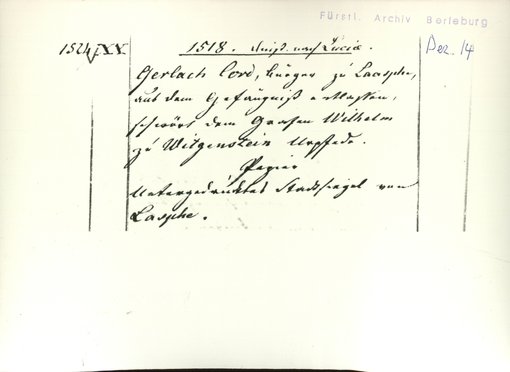 Fürstl. Archiv Berleburg
1524/XX 1518. Dinst. nach Lucie. Dez. 14
Gerlach Cord, Bürger zu Laasphe,
aus dem Gefängniß entlassen,
schwört dem Grafen Wilhelm
zu Witgenstein Urpfede.
Papier
Untergedrücktes Stadtsiegel von
Lasphe.